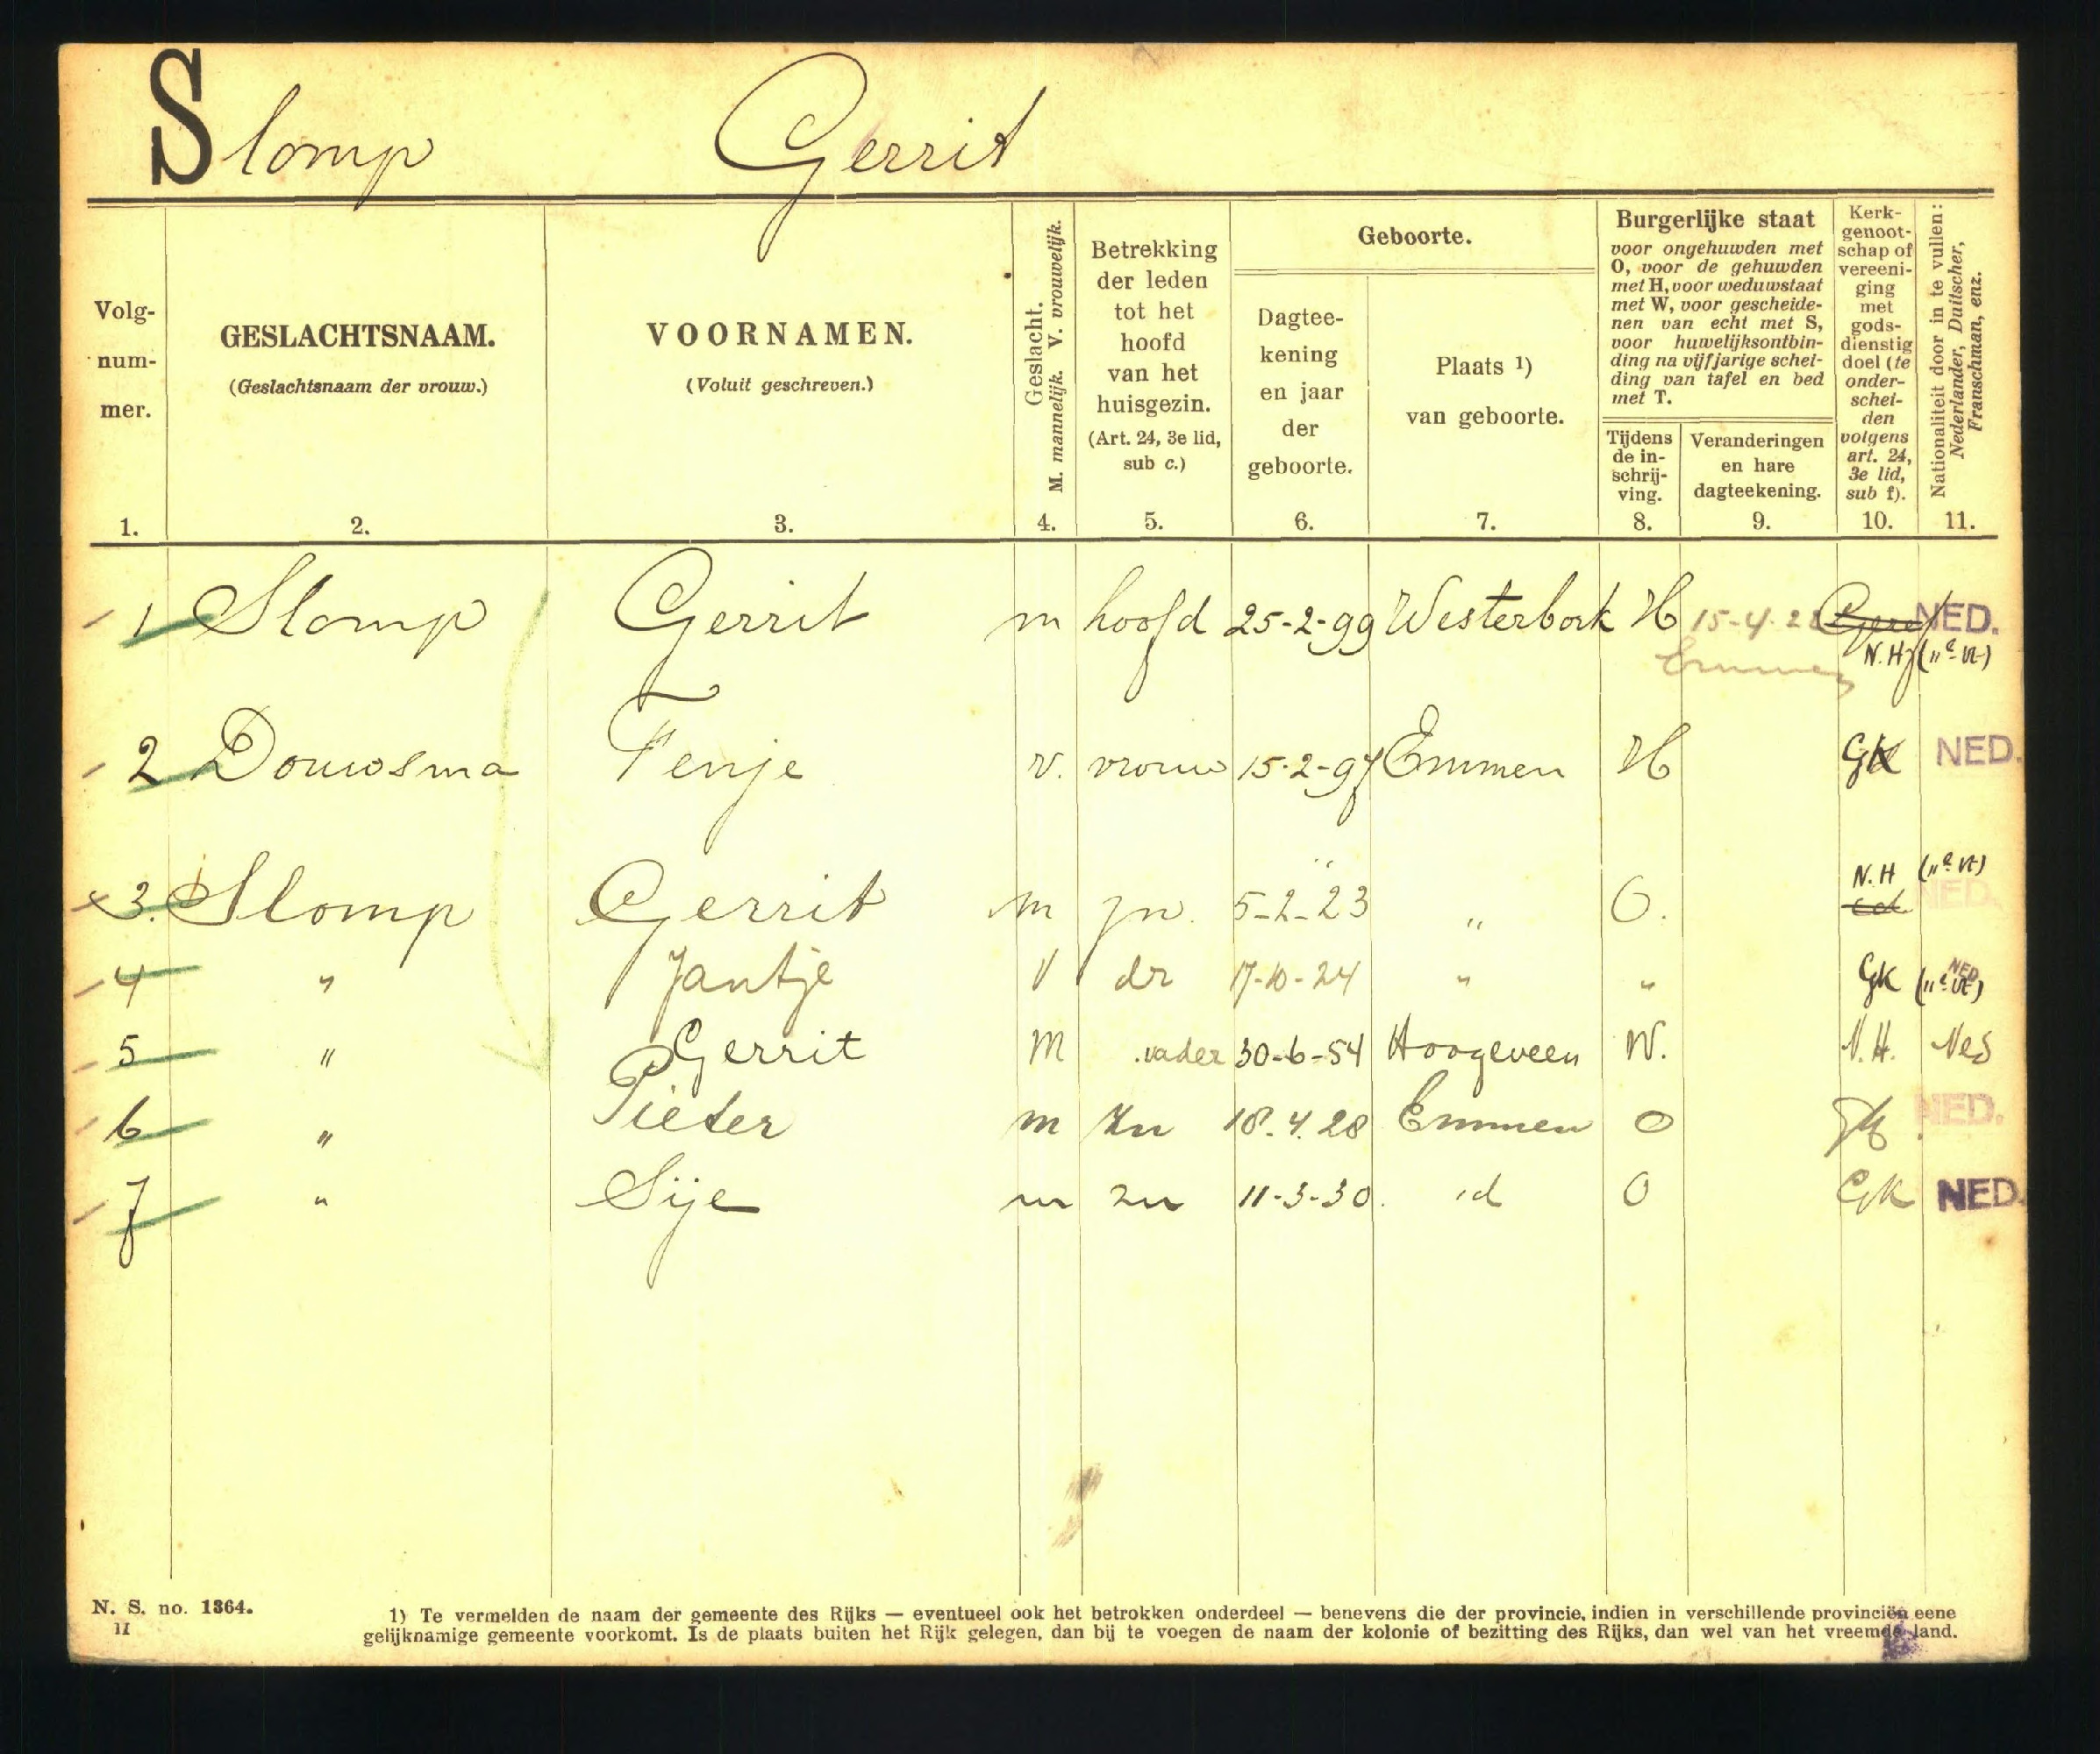 Slomp Gerrit
Volg-
num-
mer.
1.
GESLACHTSNAAM.
(Geslachtsnaam der vrouw.)
2.
VOORNAMEN.
(Voluit geschreven.)
3.
Geslacht.
M. mannelijk. V. vrouwelijk.
4.
Betrekking
der leden
tot het
hoofd
van het
huisgezin.
(Art. 24, 3e lid,
sub c.)
5.
Geboorte.
Dagtee-
kening
en jaar
der
geboorte.
6.
Plaats 1)
van geboorte.
7.
Burgerlijke staat
voor ongehuwden met
O, voor de gehuwden
met H, voor weduwstaat
met W, voor gescheide-
nen van echt met S,
voor huwelijksontbin-
ding na vijfjarige schei-
ding van tafel en bed
met T.
Tijdens
de in-
schrij-
ving.
8.
Veranderingen
en hare
dagteekening.
9.
Kerk-
genoot-
schap of
vereeni-
ging
met
gods-
dienstig
doel (te
onder-
schei-
den
volgens
art. 24,
3e lid,
sub f).
10.
Nationaliteit door in te vullen:
Nederlander, Duitscher,
Franschman, enz.
11.
1 Slomp Gerrit m hoofd 25-2-99 Westerbork H 15-4-22 NED.
Emmen N.H.
2 Douwsma Fenje v. vrouw 15-2-97 Emmen H GK NED.
N.H
3. Slomp Gerrit m zn. 5-2-23 " O. NED.
4 " Jantje V dr 17-10-24 " " GK NED
5 " Gerrit M vader 30-6-54 Hoogeveen W. N.H. Ned
6 " Pieter m Zn 18.4.28 Emmen O GK. NED.
7 " Sije m zn 11-3-30. id O GK NED.
N. S. no. 1364.
II
1) Te vermelden de naam der gemeente des Rijks — eventueel ook het betrokken onderdeel — benevens die der provincie, indien in verschillende provinciën eene
gelijknamige gemeente voorkomt. Is de plaats buiten het Rijk gelegen, dan bij te voegen de naam der kolonie of bezitting des Rijks, dan wel van het vreemde land.